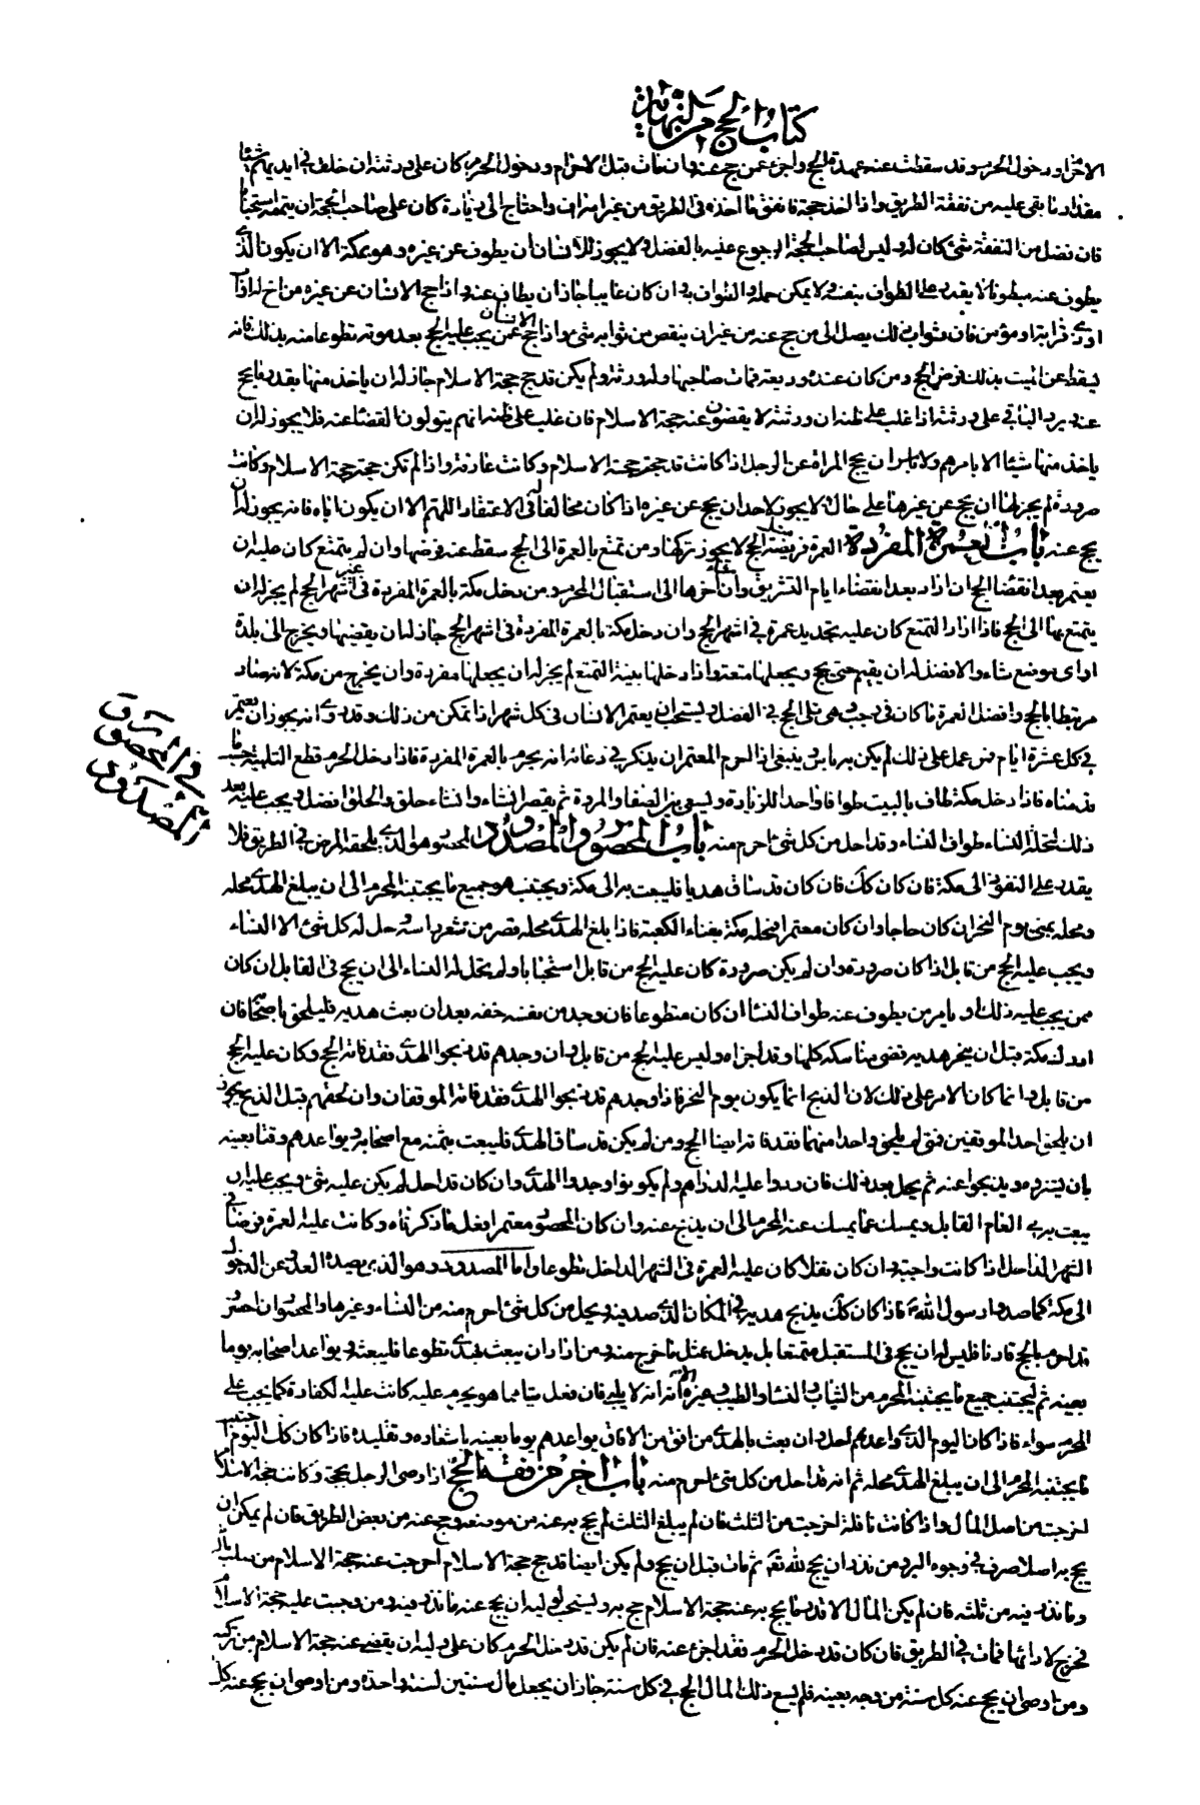 كتاب الحج من النهاية
الاحرام ودخول الحرم فقد سقطت عنه عهدة الحج واجزء عمن حج عنه وان مات قبل الاحرام ودخول الحرم كان على ورثته ان خلف في ايديهم شيئا
مقدار ما بقى عليه من نفقة الطريق واذا اخذ حجة فانفق ما اخذه في الطريق من غير اسراف واحتاج الى زيادة كان على صاحب الحجة ان يتممه استحبابا
فان فضل من النفقة شئ كان له وليس لصاحب الحجة الرجوع عليه بالفضل ولا يجوز للانسان ان يطوف عن غيره وهو بمكة الا ان يكون الذى
يطوف عنه مبطونا لا يقدر على الطواف بنفسه ولا يمكن حمله والطواف به وان كان غايبا جاز ان يطاف عنه واذا حج الانسان عن غيره من اخ له او اب
او ذى قرابة او مؤمن فان ثواب ذلك يصل الى من حج عنه من غير ان ينقص من ثوابه شئ واذا حج الانسان عمن يجب عليه الحج بعد موته تطوعا منه بذلك فانه
يسقط عن الميت بذلك فرض الحج ومن كان عنده وديعة فمات صاحبها وله ورثة ولم يكن قد حج حجة الاسلام جاز له ان ياخذ منها بقدر ما يحج
عنه ويرد الباقى على ورثته اذا غلب على ظنه ان ورثته لا يقضون عنه حجة الاسلام فان غلب على ظنه انهم يتولون القضاء عنه فلا يجوز له ان
ياخذ منها شيئا الا بامرهم ولا باس ان يحج المراة عن الرجل اذا كانت قد حجت حجة الاسلام وكانت عارفة واذا لم تكن حجت حجة الاسلام وكانت
صرورة لم يجز لها ان يحج عن غيرها على حال ولا يجوز لاحد ان يحج عن غيره اذا كان مخالفا له فى الاعتقاد اللهم الا ان يكون اباه فانه يجوز له ان
يحج عنه باب العمرة المفردة العمرة فريضة مثل الحج لا يجوز تركها ومن تمتع بالعمرة الى الحج سقط عنه فرضها وان لم يتمتع كان عليه ان
يعتمر بعد انقضاء الحج ان اراد بعد انقضاء ايام التشريق وان شاء اخرها الى استقبال المحرم ومن دخل مكة بالعمرة المفردة فى غير اشهر الحج لم يجز له ان
يتمتع بها الى الحج فاذا اراد التمتع كان عليه تجديد عمرة في اشهر الحج وان دخل مكة بالعمرة المفردة فى اشهر الحج جاز له ان يقضيها ويخرج الى بلده
او اى موضع شاء والافضل له ان يقيم حتى يحج ويجعلها متعة واذا دخلها بنية التمتع لم يجز له ان يجعلها مفردة وان يخرج من مكة لانه صار
مرتبطا بالحج وافضل العمرة ما كان فى رجب وهى تلى الحج في الفضل ويستحب ان يعتمر الانسان فى كل شهر اذا تمكن من ذلك وقد روى انه يجوز ان يعتمر
في كل عشرة ايام فمن عمل على ذلك لم يكن به باس وينبغى اذا احرم المعتمر ان يذكر في دعائه انه يحرم بالعمرة المفردة فاذا دخل الحرم قطع التلبية حسب ما
قدمناه فاذا دخل مكة طاف بالبيت طوافا واحدا للزيارة ويسعى بين الصفا والمروة ثم يقصر ان شاء وان شاء حلق والحلق افضل ويجب عليه بعد
ذلك لتحلة النساء طواف النساء وقد احل من كل شئ احرم منه باب المحصور والمصدود المحصور هو الذى يلحقه المرض في الطريق فلا
يقدر على النفوذ الى مكة فان كان كذلك فان كان قد ساق هديا فليبعث به الى مكة ويجتنب هو جميع ما يجتنبه المحرم الى ان يبلغ الهدى محله
ومحله بمنى يوم النحر ان كان حاجا وان كان معتمرا فمحله مكة بفناء الكعبة فاذا بلغ الهدى محله قصر من شعر راسه وحل له كل شئ الا النساء
ويجب عليه الحج من قابل اذا كان صرورة وان لم يكن صرورة كان عليه الحج من قابل استحبابا ولم تحل له النساء الى ان يحج فى القابل ان كان
ممن يجب عليه ذلك او يامر من يطوف عنه طواف النساء ان كان متطوعا فان وجد من نفسه خفة بعد ان بعث هديه فليلحق باصحابه فان
ادرك مكة قبل ان ينحر هديه قضى مناسكه كلها وقد اجزاه وليس عليه الحج من قابل وان وجدهم قد ذبحوا الهدى فقد فاته الحج وكان عليه الحج
من قابل وانما كان الامر على ذلك لان الذبح انما يكون يوم النحر فاذا وجدهم قد ذبحوا الهدى فقد فاته الموقفان وان لحقهم قبل الذبح يجوز
ان يلحق احد الموقفين فمتى لم يلحق واحدا منهما فقد فاته ايضا الحج ومن لم يكن قد ساق الهدى فليبعث بثمنه مع اصحابه ويواعدهم وقتا بعينه
بان يشتروه ويذبحوا عنه ثم يحل بعد ذلك فان ردوا عليه الدراهم ولم يكونوا وجدوا الهدى وان كان قد احل لم يكن عليه شئ ويجب عليه ان
يبعث به في العام القابل ويمسك عما يمسك عنه المحرم الى ان يذبح عنه وان كان المحصور معتمرا فعل ما ذكرناه وكانت عليه العمرة فرضا في
الشهر الداخل اذا كانت واجبة وان كان نفلا كان عليه العمرة فى الشهر الداخل تطوعا واما المصدود وهو الذى يصده العدو عن الدخول
الى مكة كما صدوا رسول الله فاذا كان كذلك يذبح هديه في المكان الذى صد فيه ويحل من كل شئ احرم منه من النساء وغيرها والمحصور ان احصر
وقد احرم بالحج قارنا فليس له ان يحج فى المستقبل متمتعا بل يدخل بمثل ما خرج منه ومن اراد ان يبعث بهدى تطوعا فليبعثه ويواعد اصحابه يوما
بعينه ثم ليجتنب جميع ما يجتنبه المحرم من الثياب والنساء والطيب وغيره الا انه لا يلبى فان فعل شيئا مما هو يحرم عليه كانت عليه الكفارة كما يجب على
المحرم سواء فاذا كان اليوم الذى واعدهم احل وان بعث بالهدى من افق من الافاق يواعدهم يوما بعينه باشعاره وتقليده فاذا كان كذلك اليوم اجتنب
ما يجتنبه المحرم الى ان يبلغ الهدى محله ثم انه قد احل من كل شئ احرم منه باب اخر من فقه الحج اذا اوصى الرجل بحجة وكانت حجة الاسلام
اخرجت من اصل المال واذا كانت نافلة اخرجت من الثلث فان لم يبلغ الثلث لم يحج به عنه من موضعه وحج عنه من بعض الطريق فان لم يمكن ان
يحج به اصلا صرف في وجوه البر ومن نذر ان يحج لله تع ثم مات قبل ان يحج ولم يكن ايضا قد حج حجة الاسلام اخرجت عنه حجة الاسلام من صلب ماله
وما نذر فيه من ثلثه فان لم يكن المال الا قدر ما يحج به عنه حجة الاسلام حج به ويستحب لوليه ان يحج عنه ما نذر فيه ومن وجبت عليه حجة الاسلام
فخرج لادائها فمات في الطريق فان كان قد دخل الحرم فقد اجزء عنه فان لم يكن قد دخل الحرم كان على وليه ان يقضى عنه حجة الاسلام من تركته
ومن اوصى ان يحج عنه كل سنة من وجه بعينه فلم يسع ذلك المال الحج في كل سنة جاز ان يجعل مال سنتين لسنة واحدة ومن اوصى ان يحج عنه كل
في المحصور
المصدود